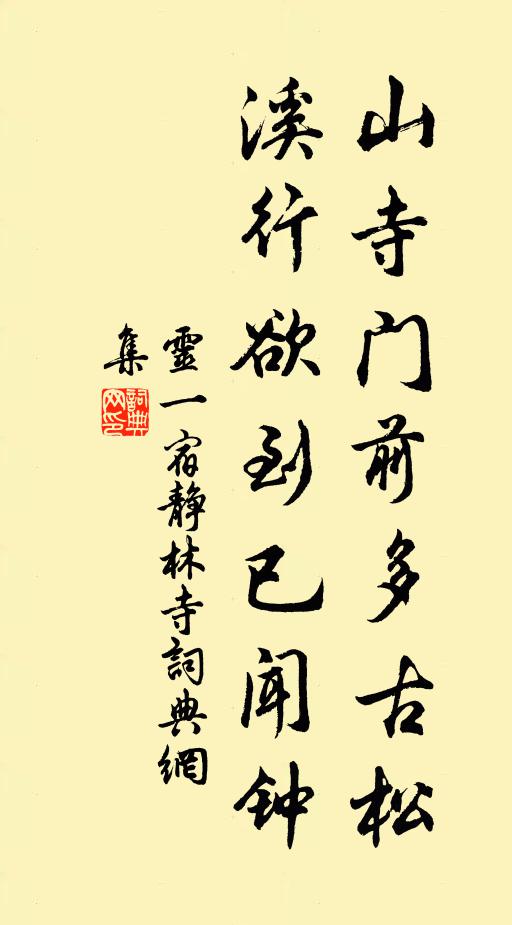 山寺门前多古松
溪行欲到已闻钟
靈一宿静林寺詞典網
集
詞典网印